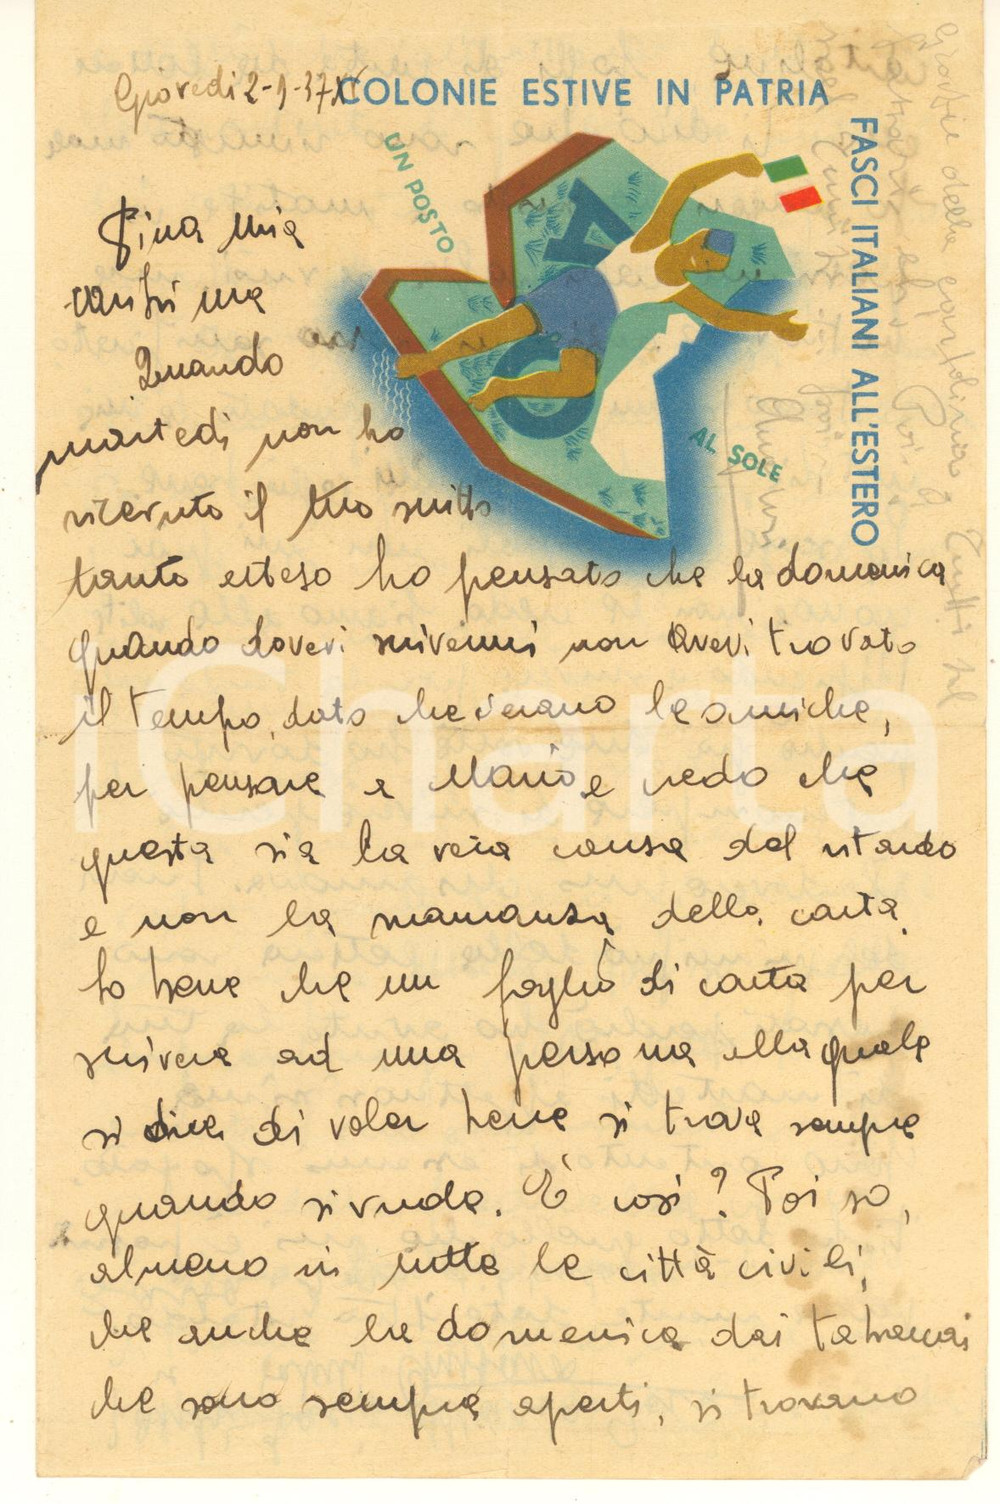 Giovedì 2-9-37 XV
COLONIE ESTIVE IN PATRIA
FASCI ITALIANI ALL'ESTERO
UN POSTO
AL SOLE
Pina mia
carissima
Quando
martedì non ho
ricevuto il tuo scritto
tanto atteso ho pensato che la domenica
quando dovevi scrivermi non avevi trovato
il tempo, dato che v'erano le amiche,
per pensare a Mario e vedo che
questa sia la vera causa del ritardo
e non la mancanza della carta.
So bene che un foglio di carta per
scrivere ad una persona alla quale
si dice di voler bene si trova sempre
quando si vuole. È così? Poi so,
almeno in tutte le città civili,
che anche la domenica dai tabaccai
che sono sempre aperti, si trovano
iCharta